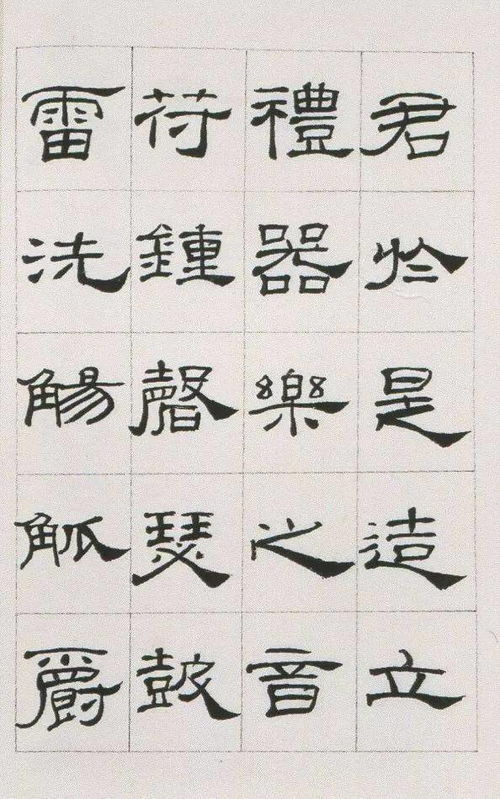 君於是造立
禮器樂之音
符鍾磬瑟鼓
雷洗觴觚爵